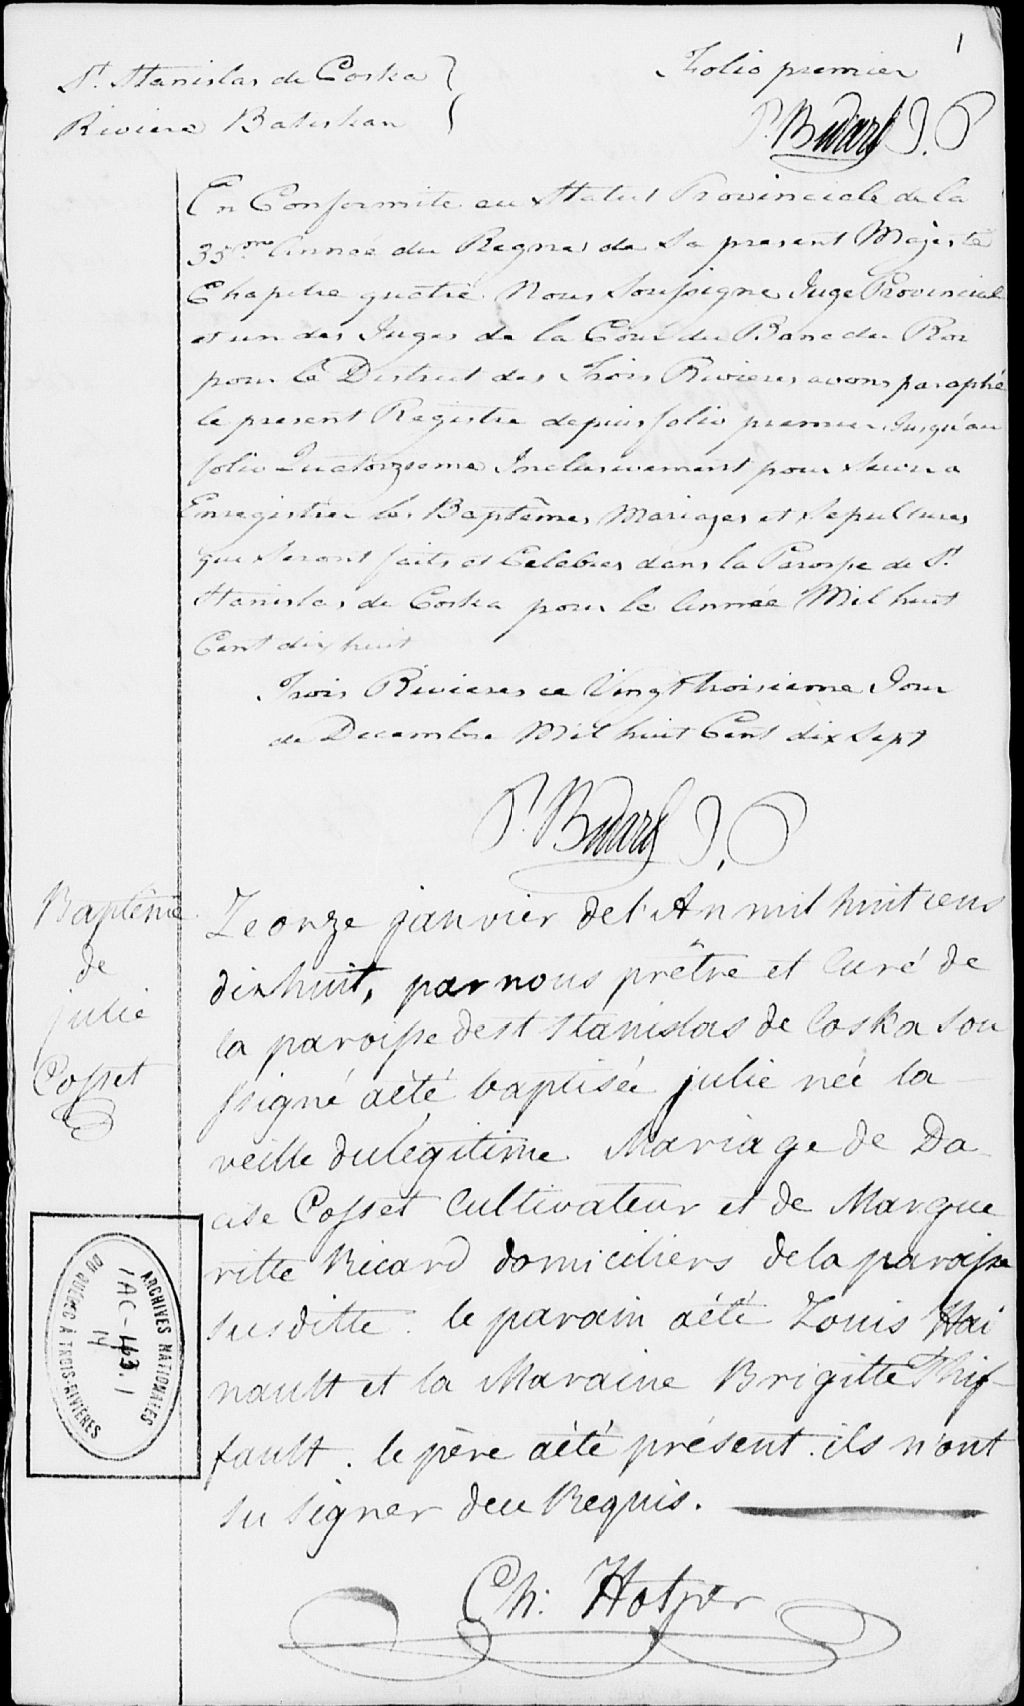 1
St. Stanislas de Coska
Riviere Batiskan
Folio premier
P. Bedard J. P
En Conformite au Statut Provinciale de la
35me Année du Regne de Sa present Majesté
Chapitre quatre. Nous Soussigne Juge Provincial
et un des Juges de la Cour du Banc du Roi
pour le District des Trois Rivieres avons paraphé
le present Registre depuis folio premier Jusqu'au
folio Quatorzieme Inclusivement pour Servir a
Enregistrer les Baptêmes Mariages et Sepultures
que Seront faits et Celebres dans la Paroisse de St.
Stanislas de Coska pour le Année Mil huit
Cent dix huit
Trois Rivieres ce Vingt troisieme Jour
de Decembre Mil huit Cent dix Sept
P. Bedard J. P
Baptême
de
julie
Cosset
Le onze janvier de l'An mil huit cens
dix huit, par nous prêtre et Curé de
la paroisse de st Stanislas de Coska sou
ssigné a été baptisée julie née la
veille du légitime Mariage de Da
cise Cosset Cultivateur et de Margue
ritte Ricard domiciliers de la paroisse
susditte. le parain a été Louis Hai
nault et la Maraine Brigitte Thif-
fault. le père a été présent. ils n'ont
su signer de ce Requis.
Ch: Hotper
ARCHIVES NATIONALES
DU QUÉBEC À TROIS-RIVIÈRES
IAC-143.1
14